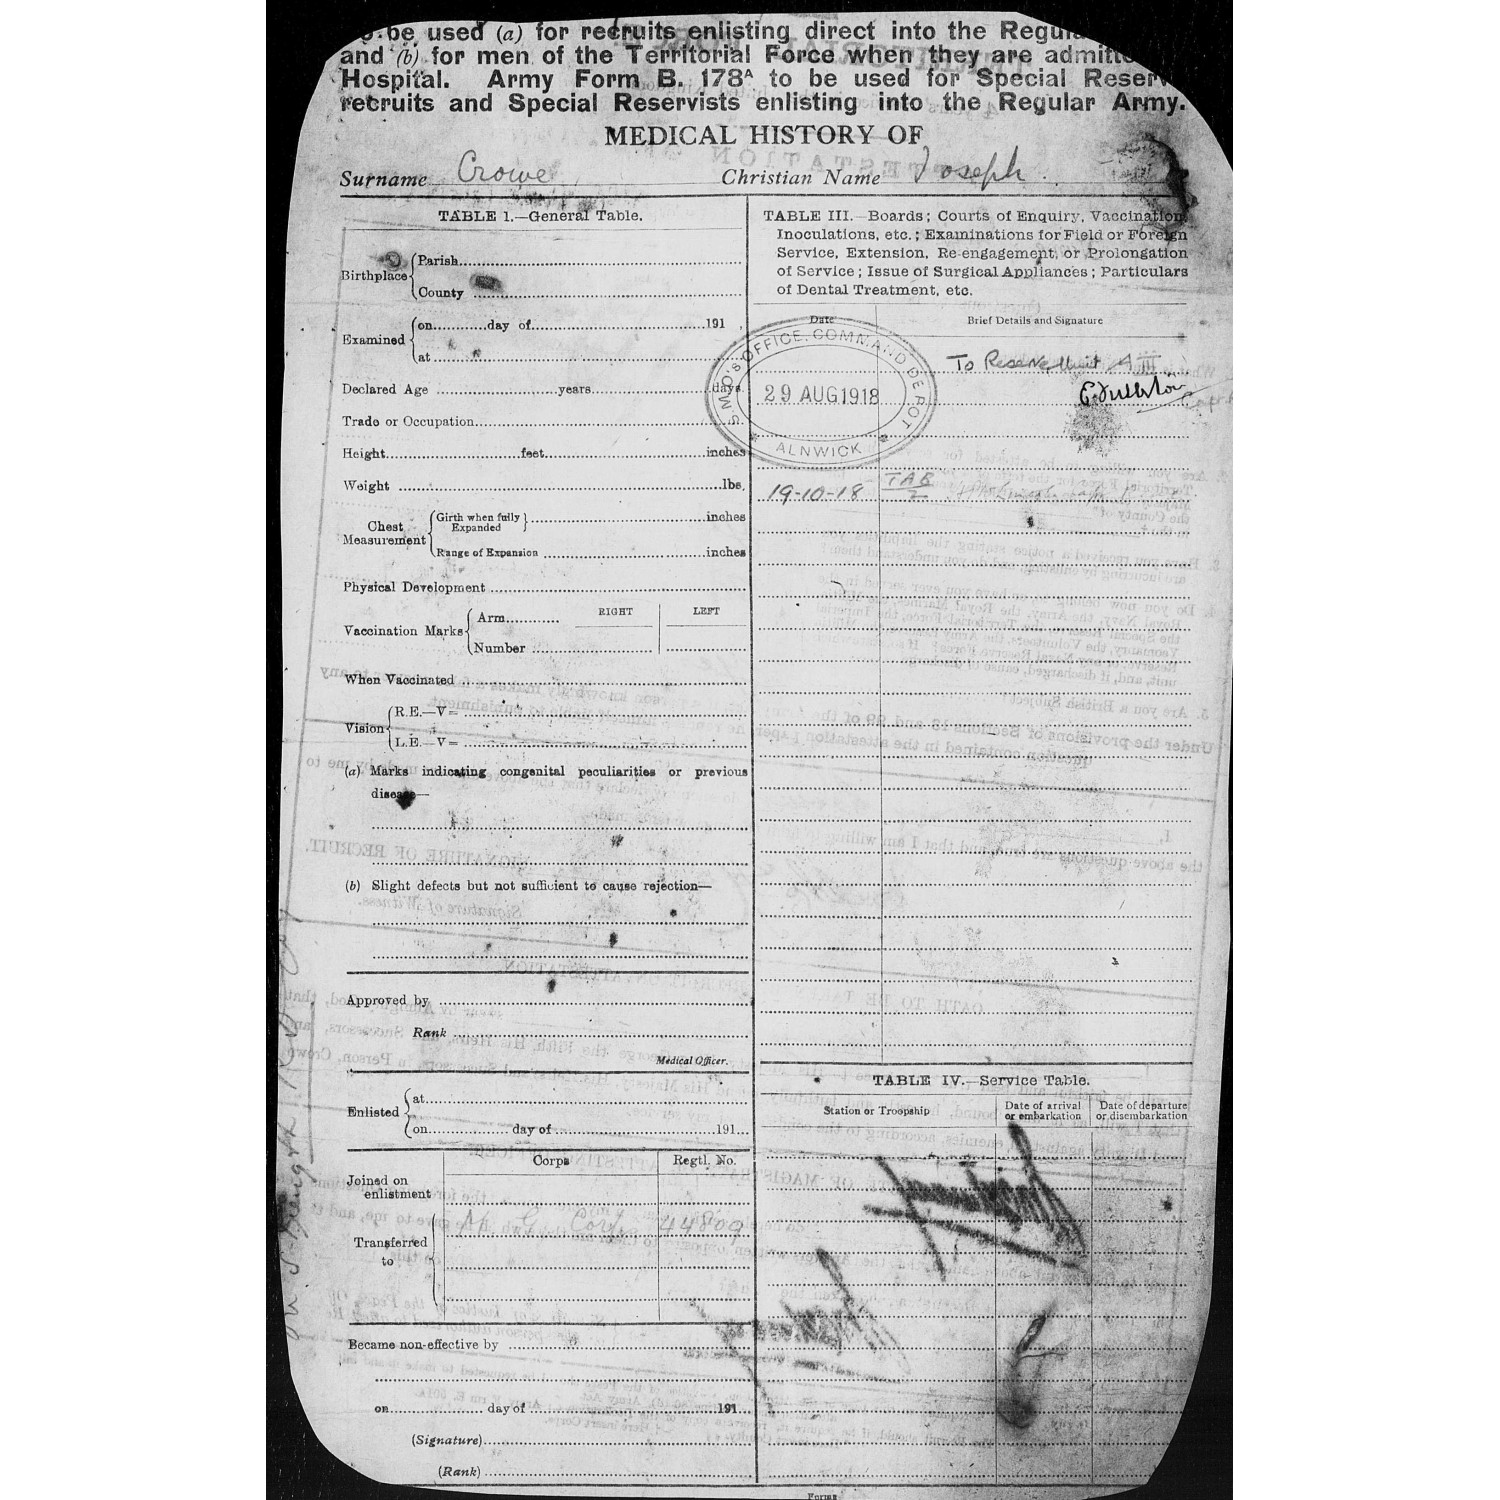 be used (a) for recruits enlisting direct into the
and (b) for men of the Territorial Force when they are
Hospital. Army Form B. 178A to be used for Special
recruits and Special Reservists enlisting into the Regular Army.
MEDICAL HISTORY OF
Surname Crowe Christian Name Joseph
TABLE I.—General Table.
Birthplace
Parish
County
Examined
on day of 191
at
Declared Age years days
Trade or Occupation
Height feet inches
Weight lbs.
Chest Measurement
Girth when fully Expanded inches
Range of Expansion inches
Physical Development
RIGHT LEFT
Vaccination Marks
Arm
Number
When Vaccinated
Vision
R.E.—V=
L.E.—V=
(a) Marks indicating congenital peculiarities or previous
disease—
(b) Slight defects but not sufficient to cause rejection—
Approved by
Rank
Medical Officer.
Enlisted
at
on day of 191
Corps Regtl. No.
Joined on
enlistment
M. G. Corps 44809
Transferred
to
Became non-effective by
on day of 191
(Signature)
(Rank)
TABLE III.—Boards; Courts of Enquiry, Vaccination,
Inoculations, etc.; Examinations for Field or Foreign
Service, Extension, Re-engagement, or Prolongation
of Service; Issue of Surgical Appliances; Particulars
of Dental Treatment, etc.
Date Brief Details and Signature
S.M.O's OFFICE, COMMAND DEPOT
29 AUG 1918
ALNWICK
To Reserve Unit A III
19-10-18 TAB 2
TABLE IV.—Service Table.
Station or Troopship
Date of arrival or embarkation
Date of departure or disembarkation
Forms